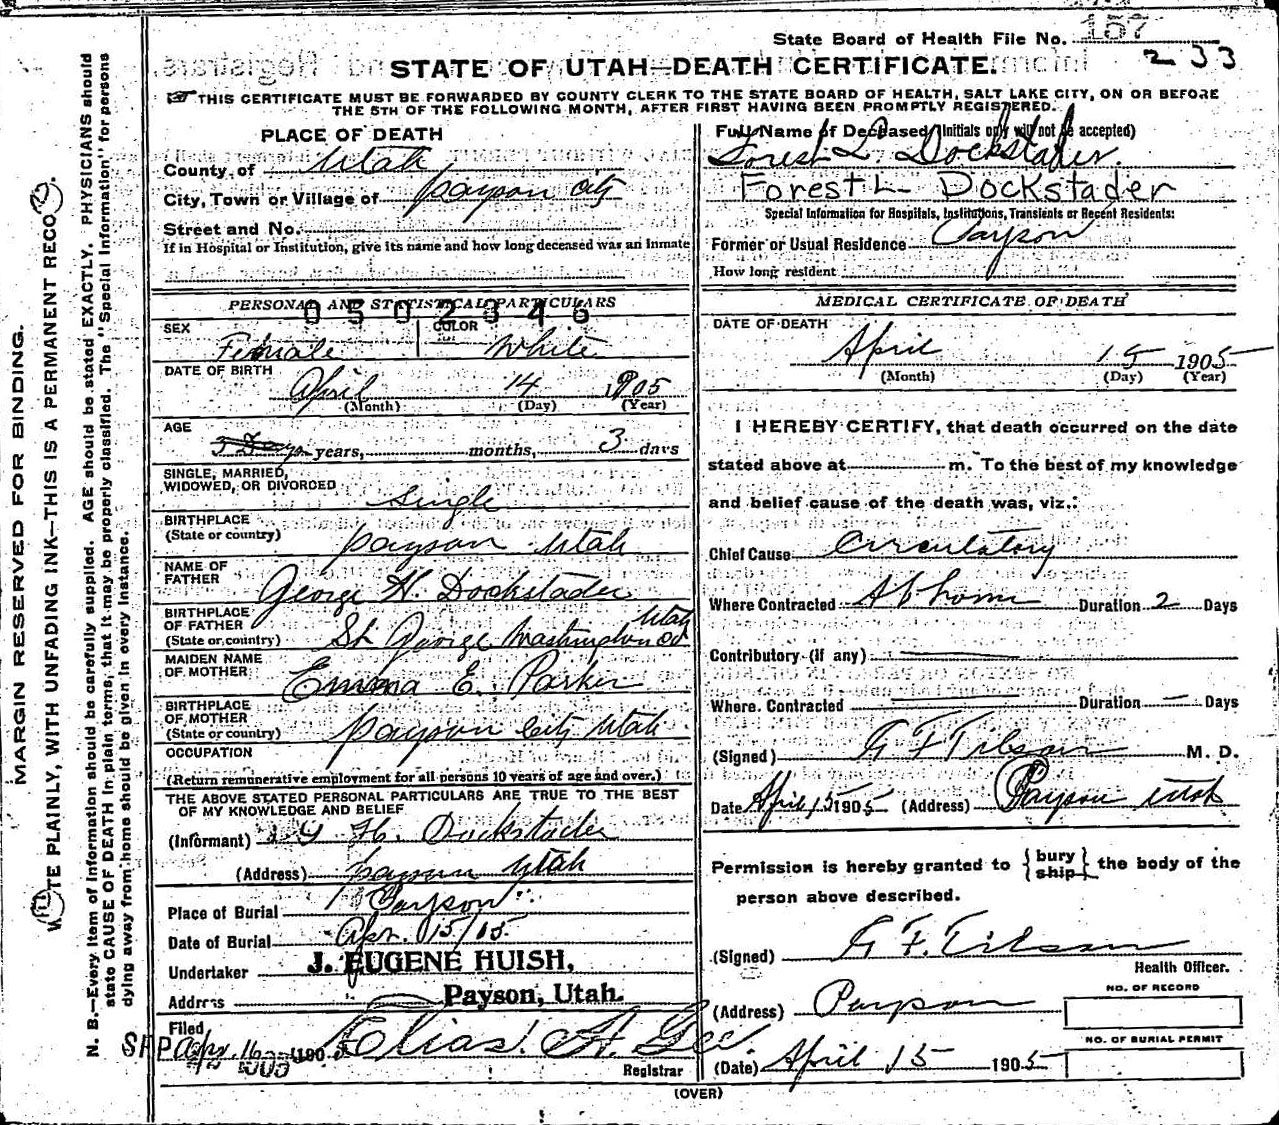 State Board of Health File No. 157
233
STATE OF UTAH—DEATH CERTIFICATE.
THIS CERTIFICATE MUST BE FORWARDED BY COUNTY CLERK TO THE STATE BOARD OF HEALTH, SALT LAKE CITY, ON OR BEFORE
THE 5TH OF THE FOLLOWING MONTH, AFTER FIRST HAVING BEEN PROMPTLY REGISTERED.
MARGIN RESERVED FOR BINDING.
WRITE PLAINLY, WITH UNFADING INK—THIS IS A PERMANENT RECORD.
N. B.—Every item of information should be carefully supplied. AGE should be stated EXACTLY. PHYSICIANS should
state CAUSE OF DEATH in plain terms, that it may be properly classified. The "Special Information" for persons
dying away from home should be given in every instance.
PLACE OF DEATH
County of Utah
City, Town or Village of Payson City
Street and No.
If in Hospital or Institution, give its name and how long deceased was an inmate
PERSONAL AND STATISTICAL PARTICULARS
0502346
SEX Female
COLOR White
DATE OF BIRTH
April 14 1905
(Month) (Day) (Year)
AGE
3 Days years, months, 3 days
SINGLE, MARRIED,
WIDOWED, OR DIVORCED Single
BIRTHPLACE
(State or country) Payson Utah
NAME OF
FATHER George H. Dockstader
BIRTHPLACE
OF FATHER
(State or country) St George Washington Co Utah
MAIDEN NAME
OF MOTHER Emma E. Parker
BIRTHPLACE
OF MOTHER
(State or country) Payson City Utah
OCCUPATION
(Return remunerative employment for all persons 10 years of age and over.)
THE ABOVE STATED PERSONAL PARTICULARS ARE TRUE TO THE BEST
OF MY KNOWLEDGE AND BELIEF
(Informant) G H. Dockstader
(Address) Payson Utah
Place of Burial Payson
Date of Burial Apr. 15/05
Undertaker J. EUGENE HUISH,
Address Payson, Utah.
Filed
Apr. 16 1905 Elias A. Gee
Registrar
Full Name of Deceased (Initials only will not be accepted)
Forest L Dockstader.
Forest L Dockstader
Special Information for Hospitals, Institutions, Transients or Recent Residents:
Former or Usual Residence Payson
How long resident
MEDICAL CERTIFICATE OF DEATH
DATE OF DEATH
April 15 1905
(Month) (Day) (Year)
I HEREBY CERTIFY, that death occurred on the date
stated above at m. To the best of my knowledge
and belief cause of the death was, viz.:
Chief Cause Circulatory
Where Contracted At home Duration 2 Days
Contributory (if any)
Where Contracted Duration — Days
(Signed) G F Tilson M. D.
Date April 15 1905 (Address) Payson Utah
Permission is hereby granted to {bury ship} the body of the
person above described.
(Signed) G F. Tilson
Health Officer.
(Address) Payson
NO. OF RECORD
NO. OF BURIAL PERMIT
(Date) April 15 1905
(OVER)